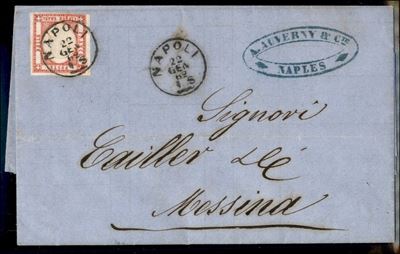 NAPOLI
22
GEN
NAPOLI
22
GEN
62
1 S
A. AUVERNY & Cie
NAPLES
Signori
Cailler & Cé
Messina